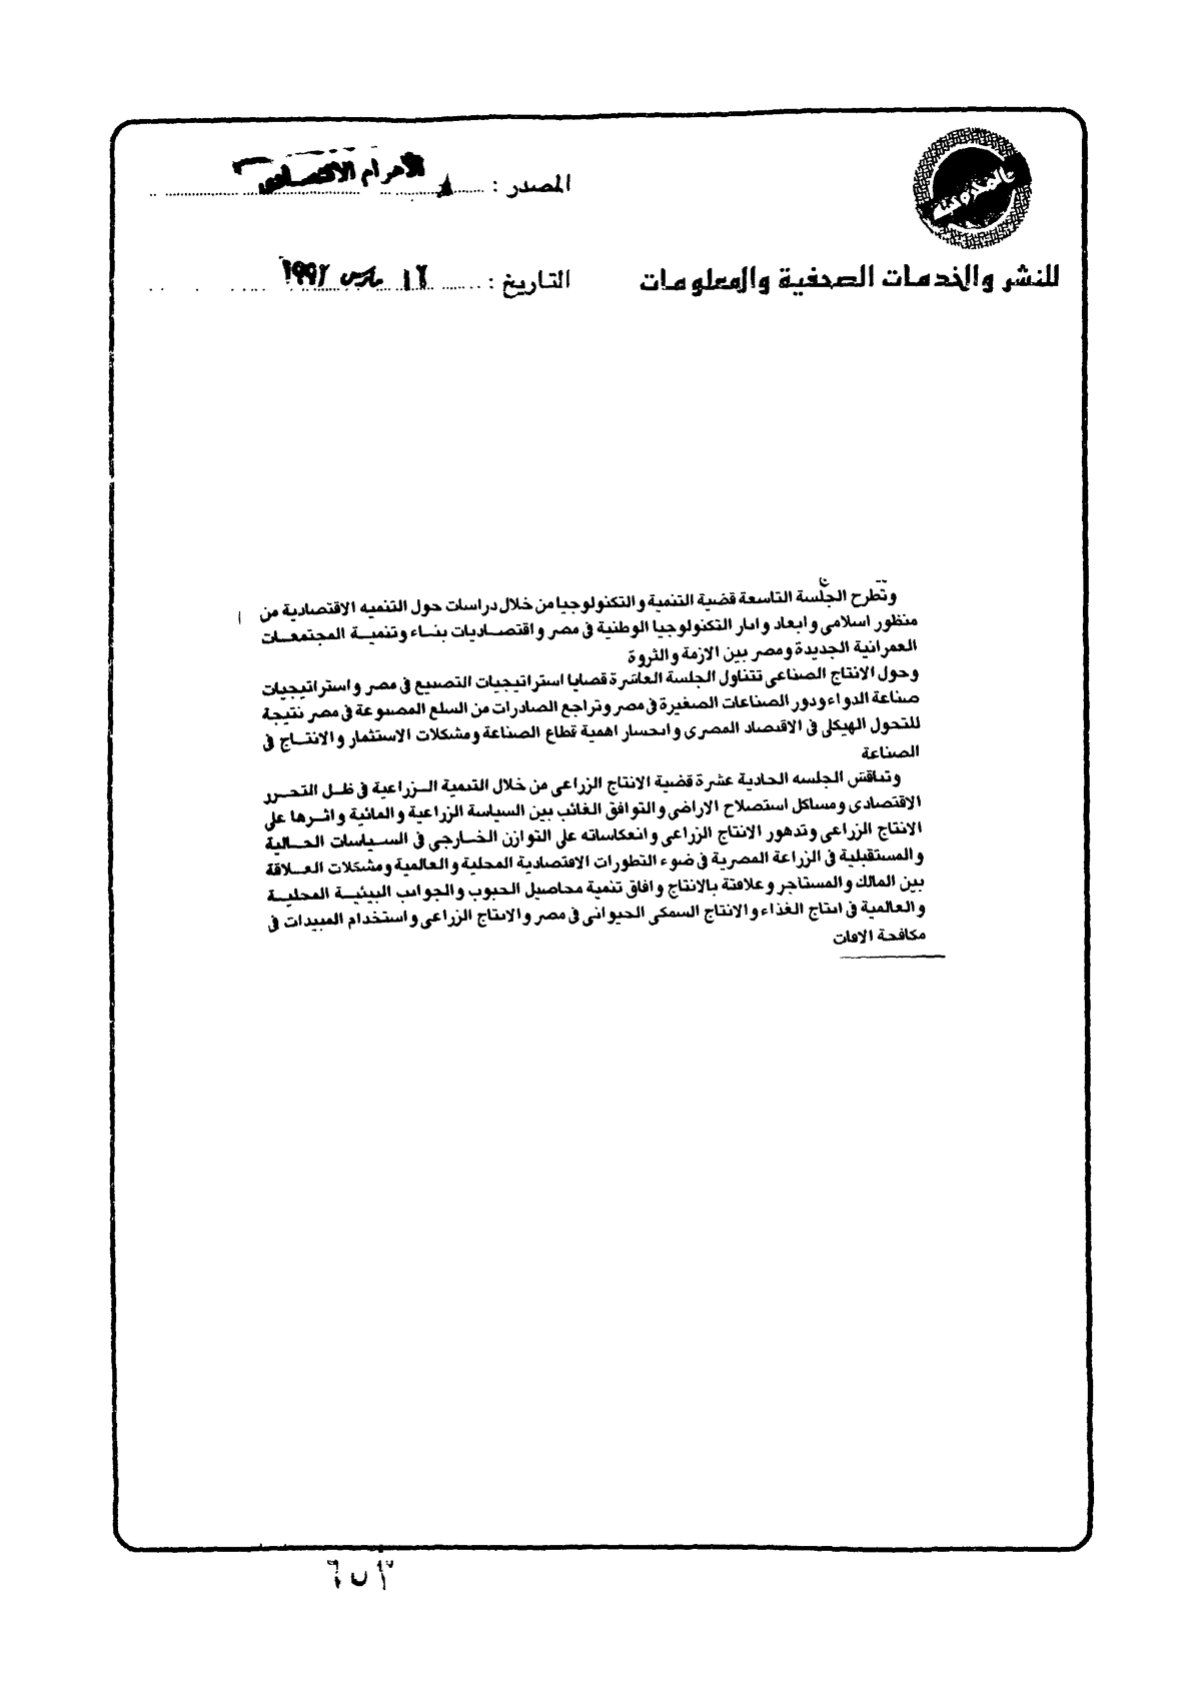 المصدر : الأهرام الاقتصادى
للنشر والخدمات الصحفية والمعلومات
التاريخ : ١٦ مارس ١٩٩٢
وتطرح الجلسة التاسعة قضية التنمية والتكنولوجيا من خلال دراسات حول التنميه الاقتصادية من
منظور اسلامى وابعاد واثار التكنولوجيا الوطنية فى مصر واقتصاديات بناء وتنمية المجتمعات
العمرانية الجديدة ومصر بين الازمة والثروة
وحول الانتاج الصناعى تتناول الجلسة العاشرة قضايا استراتيجيات التصنيع فى مصر واستراتيجيات
صناعة الدواء ودور الصناعات الصغيرة فى مصر وتراجع الصادرات من السلع المصنوعة فى مصر نتيجة
للتحول الهيكلى فى الاقتصاد المصرى وانحسار اهمية قطاع الصناعة ومشكلات الاستثمار والانتاج فى
الصناعة
وتناقش الجلسه الحادية عشرة قضية الانتاج الزراعى من خلال التنمية الزراعية فى ظل التحرر
الاقتصادى ومشاكل استصلاح الاراضى والتوافق الغائب بين السياسة الزراعية والمائية واثرها على
الانتاج الزراعى وتدهور الانتاج الزراعى وانعكاساته على التوازن الخارجى فى السياسات الحالية
والمستقبلية فى الزراعة المصرية فى ضوء التطورات الاقتصادية المحلية والعالمية ومشكلات العلاقة
بين المالك والمستاجر وعلاقتة بالانتاج وافاق تنمية محاصيل الحبوب والجوانب البيئية المحلية
والعالمية فى انتاج الغذاء والانتاج السمكى الحيوانى فى مصر والانتاج الزراعى واستخدام المبيدات فى
مكافحة الافات